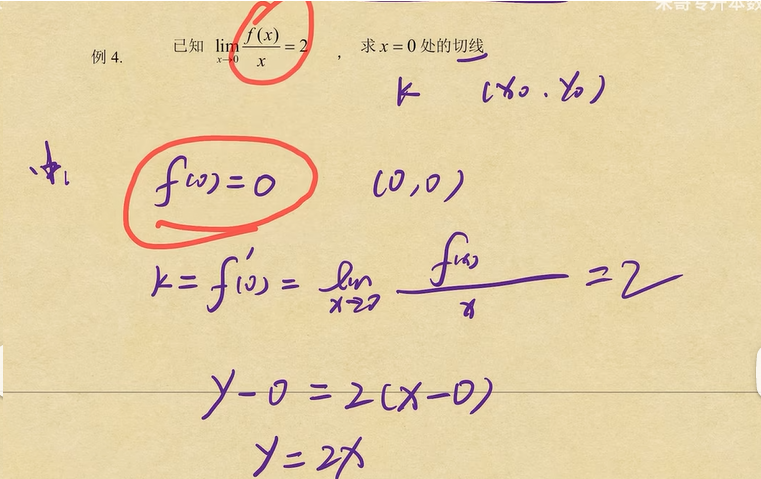 例 4. 已知 lim x→0 f(x)/x = 2 , 求 x = 0 处的切线
k (x0, y0)
f(0) = 0 (0,0)
k = f'(0) = lim x→0 f(x)/x = 2
y-0 = 2(x-0)
y = 2x